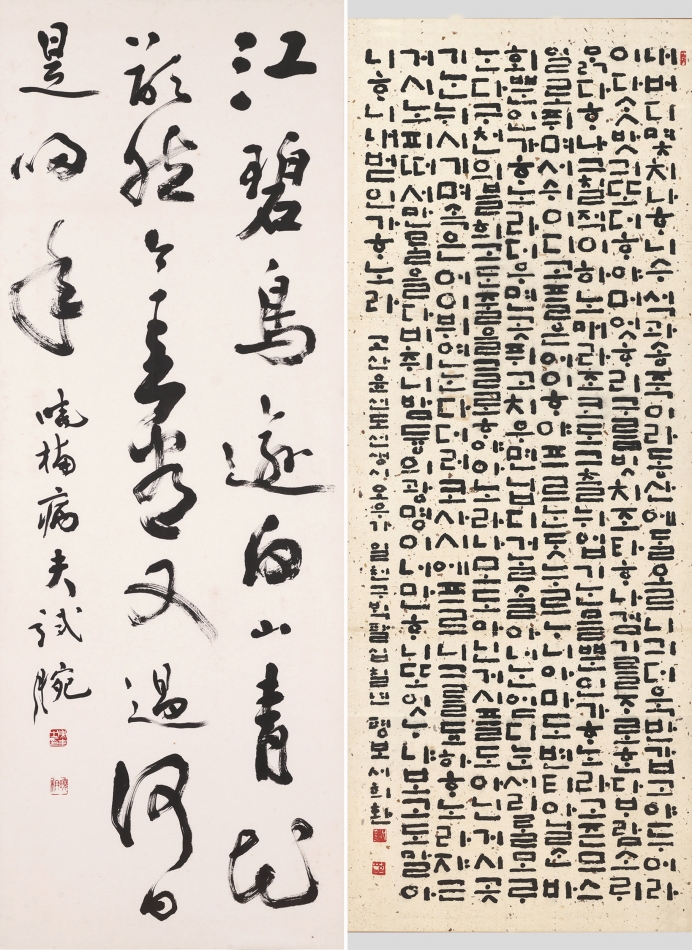 江碧鳥逾白山青花
欲然今春看又過何日
是歸年
梅病夫試腕
내버디몃치나ᄒᆞ니수석과송죽이라동산에ᄃᆞᆯ오르니긔더옥반갑고야두어라
이다ᄉᆞᆺ밧긔또더ᄒᆞ야머엇ᄒᆞ리구룸빗치조타ᄒᆞ나검기ᄅᆞᆯᄌᆞ로ᄒᆞᆫ다ᄇᆞ람소리
ᄆᆞᆰ다ᄒᆞ나그칠적이하노매라조코도그츨뉘업기ᄂᆞᆫ믈뿐인가ᄒᆞ노라고즌므스
일로퓌며서수이디고플은어이ᄒᆞ야프르ᄂᆞᆫᄃᆞᆺ누르ᄂᆞ니아마도변티아닐ᄉᆞᆫ바
회뿐인가ᄒᆞ노라더우면곳퓌고치우면닙디거ᄂᆞᆯ솔아너ᄂᆞᆫ얻디눈서리ᄅᆞᆯ모ᄅᆞ
ᄂᆞᆫ다구천의불희고ᄃᆞᆫ줄을글로ᄒᆞ야아노라나모도아닌거시플도아닌거시곳
기ᄂᆞᆫ뉘시기며속은어이뷔연ᄂᆞᆫ다뎌러코사시예프르니그를됴하ᄒᆞ노라쟈근
거시노피떠서만물을다비취니밤듕의광명이너만ᄒᆞ니또잇ᄂᆞ냐보고도말아
니ᄒᆞ니내벋인가ᄒᆞ노라
고산윤선도선생시오우가 평보서희환